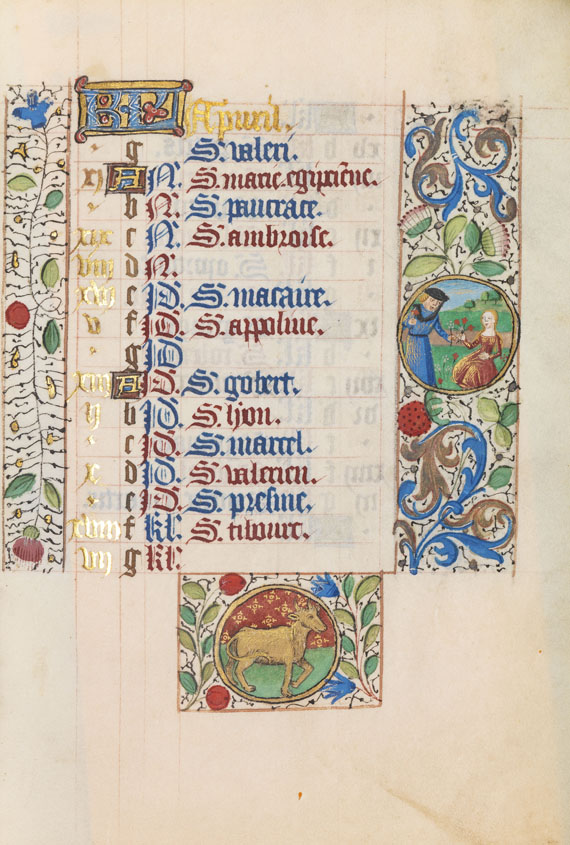 KL Apuril.
g S. valeri.
xj A N. S. marie egipciene.
b N. S. pancrace.
xix c N. S. ambroise.
viij d N.
xvj e JD. S. macaire.
v f JD. S. appoline.
g JD
xiij A JD. S. gobert.
ij b JD. S. lyon.
c JD. S. marcel.
x d JD. S. valerien.
e JD. S. presine.
xviij f kl. S. tiburc.
vij g kl.